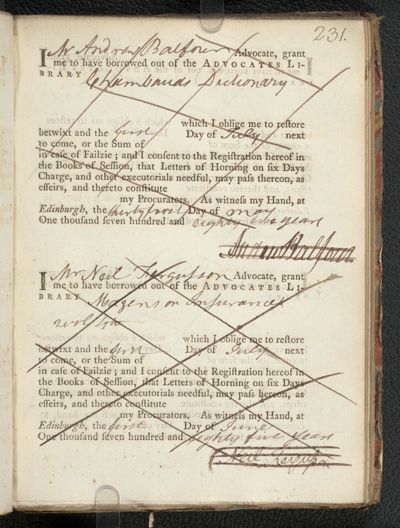 231.
I Mr Andrew Balfour Advocate, grant
me to have borrowed out of the ADVOCATES LI-
BRARY Chambauds Dictionary
which I oblige me to reſtore
betwixt and the first Day of July next
to come, or the Sum of
in caſe of Failzie; and I conſent to the Regiſtration hereof in
the Books of Seſſion, that Letters of Horning on ſix Days
Charge, and other executorials needful, may paſs thereon, as
effeirs, and thereto conſtitute
my Procurators. As witneſs my Hand, at
Edinburgh, the thirty first Day of may
One thouſand ſeven hundred and eighty five years
Andw Balfour
I Mr Neil Fergusson Advocate, grant
me to have borrowed out of the ADVOCATES LI-
BRARY Magens on Insurances
which I oblige me to reſtore
betwixt and the first Day of July next
to come, or the Sum of
in caſe of Failzie; and I conſent to the Regiſtration hereof in
the Books of Seſſion, that Letters of Horning on ſix Days
Charge, and other executorials needful, may paſs hereon, as
effeirs, and thereto conſtitute
my Procurators. As witneſs my Hand, at
Edinburgh, the first Day of June
One thouſand ſeven hundred and eighty five years
Neil Fergusson